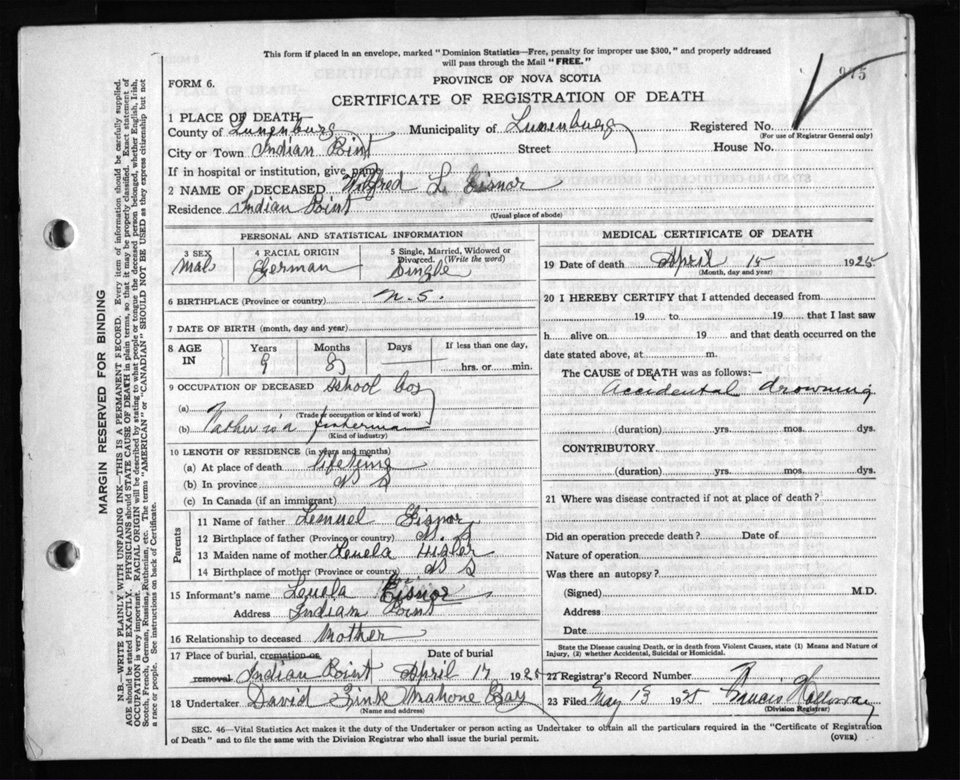 This form if placed in an envelope, marked "Dominion Statistics—Free, penalty for improper use $300," and properly addressed
will pass through the Mail "FREE."
PROVINCE OF NOVA SCOTIA
FORM 6.
975
CERTIFICATE OF REGISTRATION OF DEATH
1 PLACE OF DEATH
County of Lunenburg Municipality of Lunenburg Registered No.
(For use of Registrar General only)
City or Town Indian Point Street House No.
If in hospital or institution, give name
2 NAME OF DECEASED Wilfred L. Eisnor
Residence Indian Point
(Usual place of abode)
PERSONAL AND STATISTICAL INFORMATION
3 SEX 4 RACIAL ORIGIN 5 Single, Married, Widowed or
Divorced. (Write the word)
Male German Single
6 BIRTHPLACE (Province or country) N.S.
7 DATE OF BIRTH (month, day and year)
8 AGE IN Years Months Days If less than one day,
9 8 hrs. or min.
9 OCCUPATION OF DECEASED School boy
(a)
(Trade occupation or kind of work)
(b) Father is a fisherman
(Kind of industry)
10 LENGTH OF RESIDENCE (in years and months)
(a) At place of death lifetime
(b) In province N S
(c) In Canada (if an immigrant)
Parents
11 Name of father Lemuel Eisnor
12 Birthplace of father (Province or country) N. S
13 Maiden name of mother
14 Birthplace of mother (Province or country) N S
15 Informant's name Eisnor
Address Indian Point
16 Relationship to deceased Mother
17 Place of burial, cremation or removal Date of burial
Indian Point April 17 1925
18 Undertaker David Zink Mahone Bay
(Name and address)
MEDICAL CERTIFICATE OF DEATH
19 Date of death April 15 1925
(Month, day and year)
20 I HEREBY CERTIFY that I attended deceased from
19 to 19 that I last saw
h alive on 19 and that death occurred on the
date stated above, at m.
The CAUSE of DEATH was as follows:—
Accidental drowning
(duration) yrs. mos. dys.
CONTRIBUTORY.
(duration) yrs. mos. dys.
21 Where was disease contracted if not at place of death?
Did an operation precede death? Date of
Nature of operation
Was there an autopsy?
(Signed) M.D.
Address
Date
State the Disease causing Death, or in death from Violent Causes, state (1) Means and Nature of
Injury, (2) whether Accidental, Suicidal or Homicidal.
22 Registrar's Record Number
23 Filed May 13 1925 Francis Holloway
(Division Registrar)
SEC. 46—Vital Statistics Act makes it the duty of the Undertaker or person acting as Undertaker to obtain all the particulars required in the "Certificate of Registration
of Death" and to file the same with the Division Registrar who shall issue the burial permit.
(OVER)
MARGIN RESERVED FOR BINDING
N.B.—WRITE PLAINLY WITH UNFADING INK—THIS IS A PERMANENT RECORD. Every item of information should be carefully supplied.
AGE should be stated EXACTLY. PHYSICIANS should STATE CAUSE OF DEATH in plain terms, so that it may be properly classified. Exact statement of
OCCUPATION is very important. RACIAL ORIGIN will be described by stating to what people or tongue the deceased person belonged, whether English, Irish,
Scotch, French, German, Russian, Ruthenian, etc. The terms "AMERICAN" or "CANADIAN" SHOULD NOT BE USED as they express citizenship but not
a race or people. See instructions on back of Certificate.